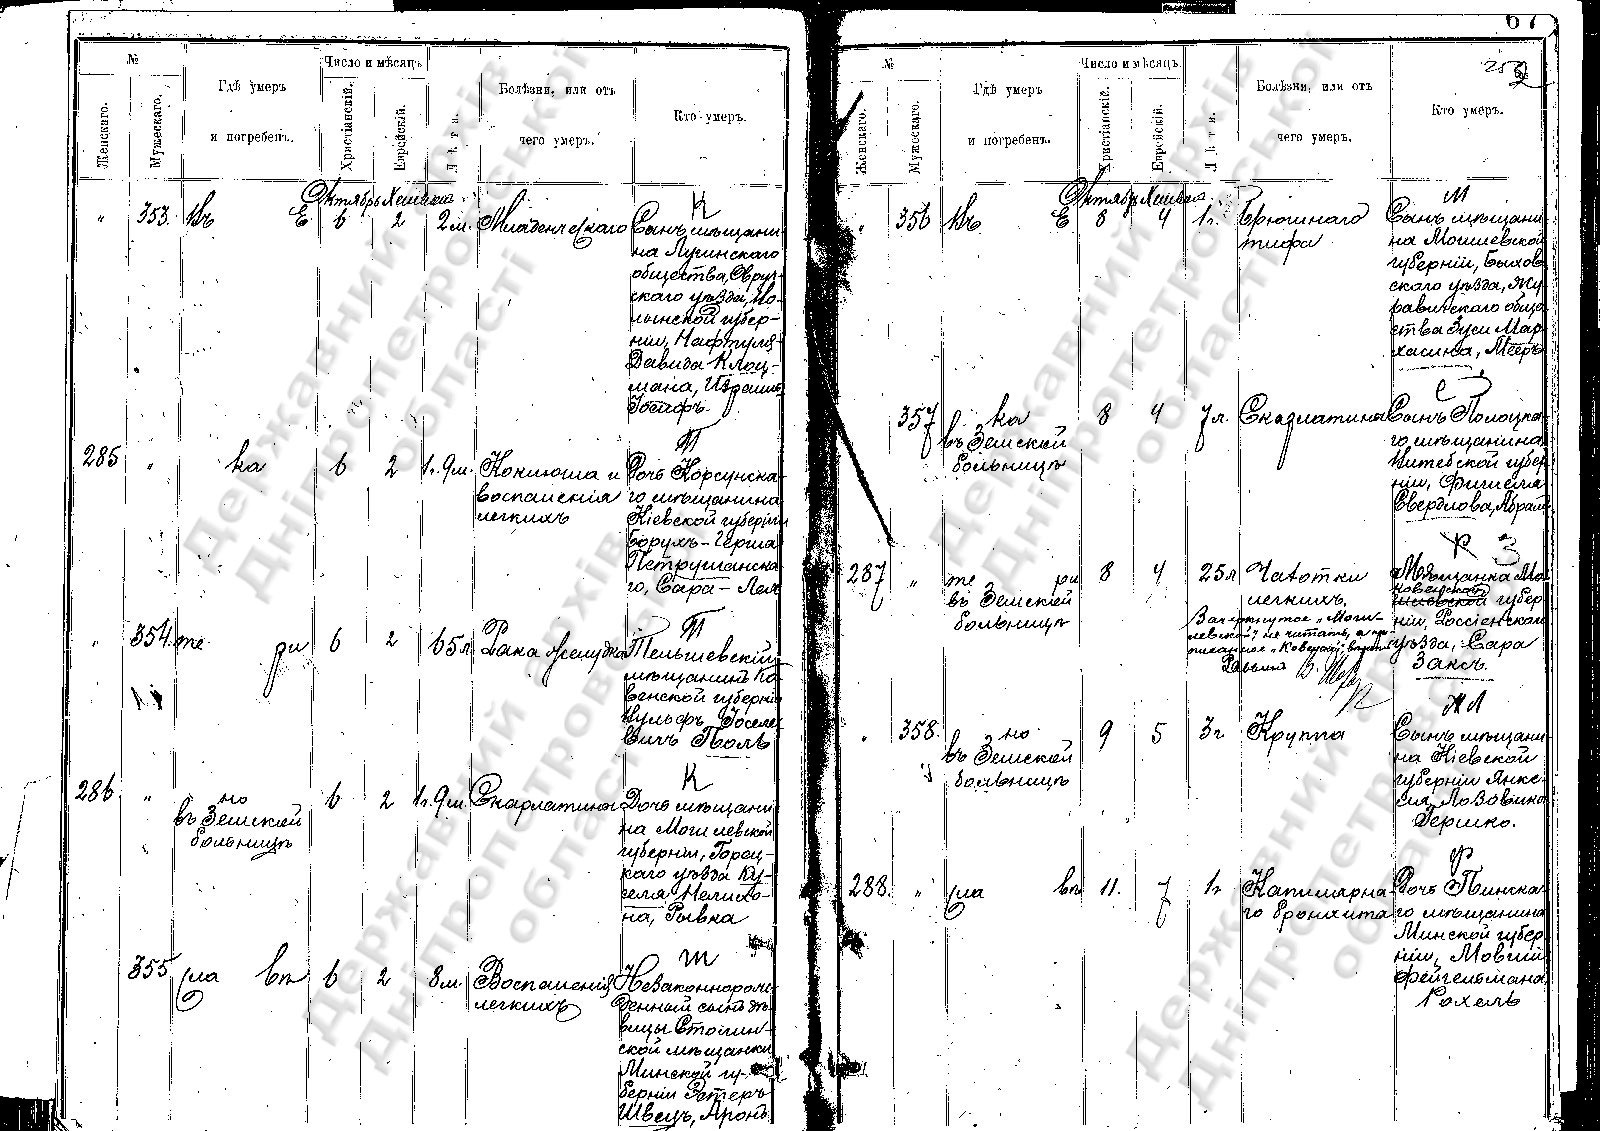 67
252
№
Женскаго.
Мужескаго.
Гдѣ умеръ
и погребенъ.
Число и мѣсяцъ
Христіанскій.
Еврейскій.
Лѣта.
Болѣзни, или отъ
чего умеръ.
Кто умеръ.
Октябрь Хешвана
К
" 353. Въ Е 6 2 2 м. Младенческаго
Сынъ мѣщани
на Лугинскаго
общества, Овруч
скаго уѣзда, Во-
лынской губер-
ніи, Нафтула
Давида Клоц-
мана, Израиль
Іосифъ.
Т
285 " ка 6 2 1 г. 9 м. Коклюша и
воспаленія
легкихъ
Дочь Корсунска-
го мѣщанина
Кіевской губерніи
Борухъ-Герша
Петрушанска-
го, Сара-Лея
Т
" 354. те ри 6 2 65 л Рака желудка
Тельшевскій
мѣщанинъ Ко
венской губерніи
Вульфъ Іоселе
вичъ Поль
К
286 " но 6 2 1 г. 9 м. Скарлатина
въ Земской
больницѣ
Дочь мѣщани
на Могилевской
губерніи, Горец-
каго уѣзда Ку-
селя Нелихо-
на, Рывка
Т
355 сла вп 6 2 8 м. Воспаленія
легкихъ
Незаконнорож-
денный сынъ дѣ-
вицы Столин-
ской мѣщанки
Минской гу-
берніи Эстеръ
Швецъ, Аронъ
№
Женскаго.
Мужескаго.
Гдѣ умеръ
и погребенъ.
Число и мѣсяцъ.
Христіанскій.
Еврейскій.
Лѣта.
Болѣзни, или отъ
чего умеръ.
Кто умеръ.
Октябрь Хешвана
М
" 356 Въ Е 8 4 1 г. Брюшнаго
тифа
Сынъ мѣщани-
на Могилевской
губерніи, Быхов
скаго уѣзда, Жу
равичскаго обще
ства Зуси Мар
хасина, Мееръ
С
357 ка 8 4 7 л. Скарлатина
въ Земской
больницѣ
Сынъ Полоцка-
го мѣщанина
Витебской губер
ніи, Фишеля
Свердлова, Абрамъ
З
287 " те ри 8 4 25 л Чахотки
въ Земской
больницѣ
легкихъ.
Зачеркнутое "Моги-
левской" не читать, а на-
писанное "Ковенской" вѣрно
Раввинъ
Мѣщанка
Ковенской
губер
ніи, Россіенскаго
уѣзда, Сара
Заксъ.
Л
" 358. но 9 5 3 г Круппа
въ Земской
больницѣ
Сынъ мѣщани-
на Кіевской
губерніи Янке-
ля Лозовика
Гершко.
Ф
288. " сла вп 11. 7 1 г Капилярна-
го бронхита
Дочь Пинска-
го мѣщанина
Минской губер
ніи, Мовши
Фейгельмана,
Рохель
Державний архів
Дніпропетровської
області